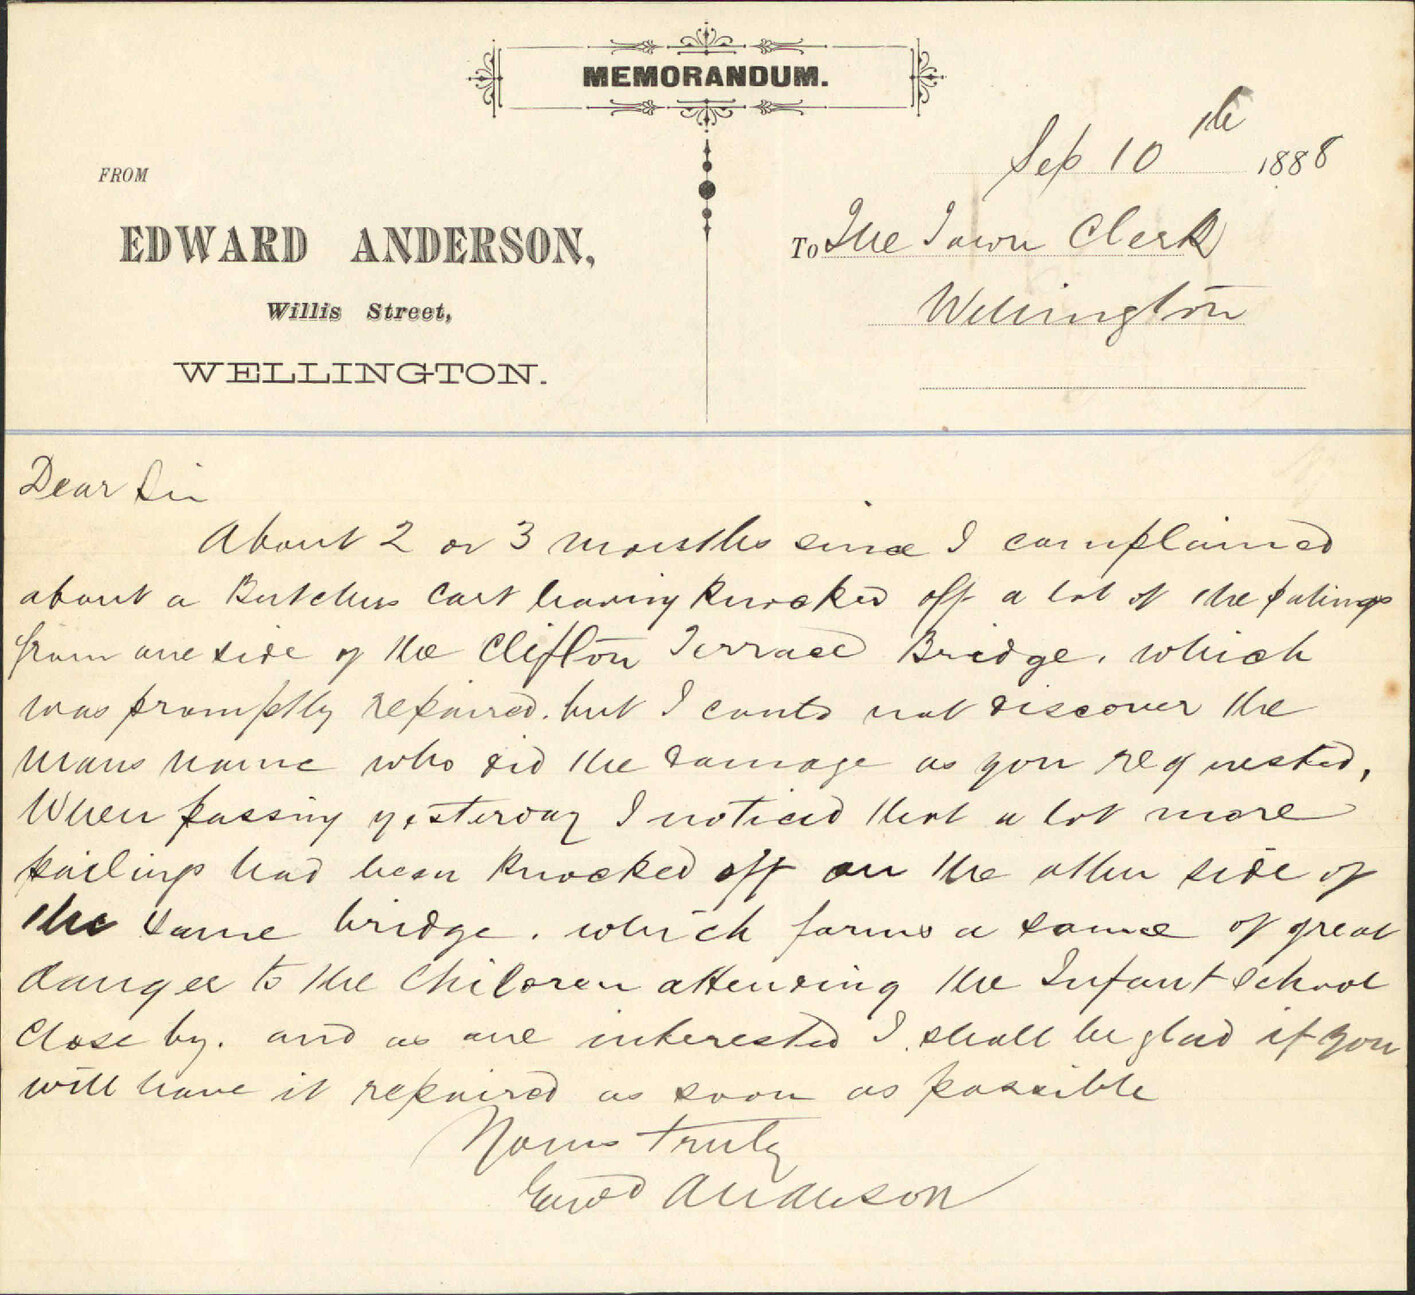 MEMORANDUM.
Sep 10th 1888
FROM
EDWARD ANDERSON,
Willis Street,
WELLINGTON.
To The Town Clerk
Wellington
Dear Sir
About 2 or 3 months since I complained
about a Butchers Cart having knocked off a lot of the palings
from one side of the Clifton Terrace Bridge. which
was promptly repaired. but I could not discover the
mans name who did the damage as you requested,
When passing yesterday I noticed that a lot more
pailings had been knocked off on the other side of
the same bridge. which forms a source of great
danger to the Children attending the Infant School
close by. and as one interested I shall be glad if you
will have it repaired as soon as possible
Yours truly
Edwd Anderson